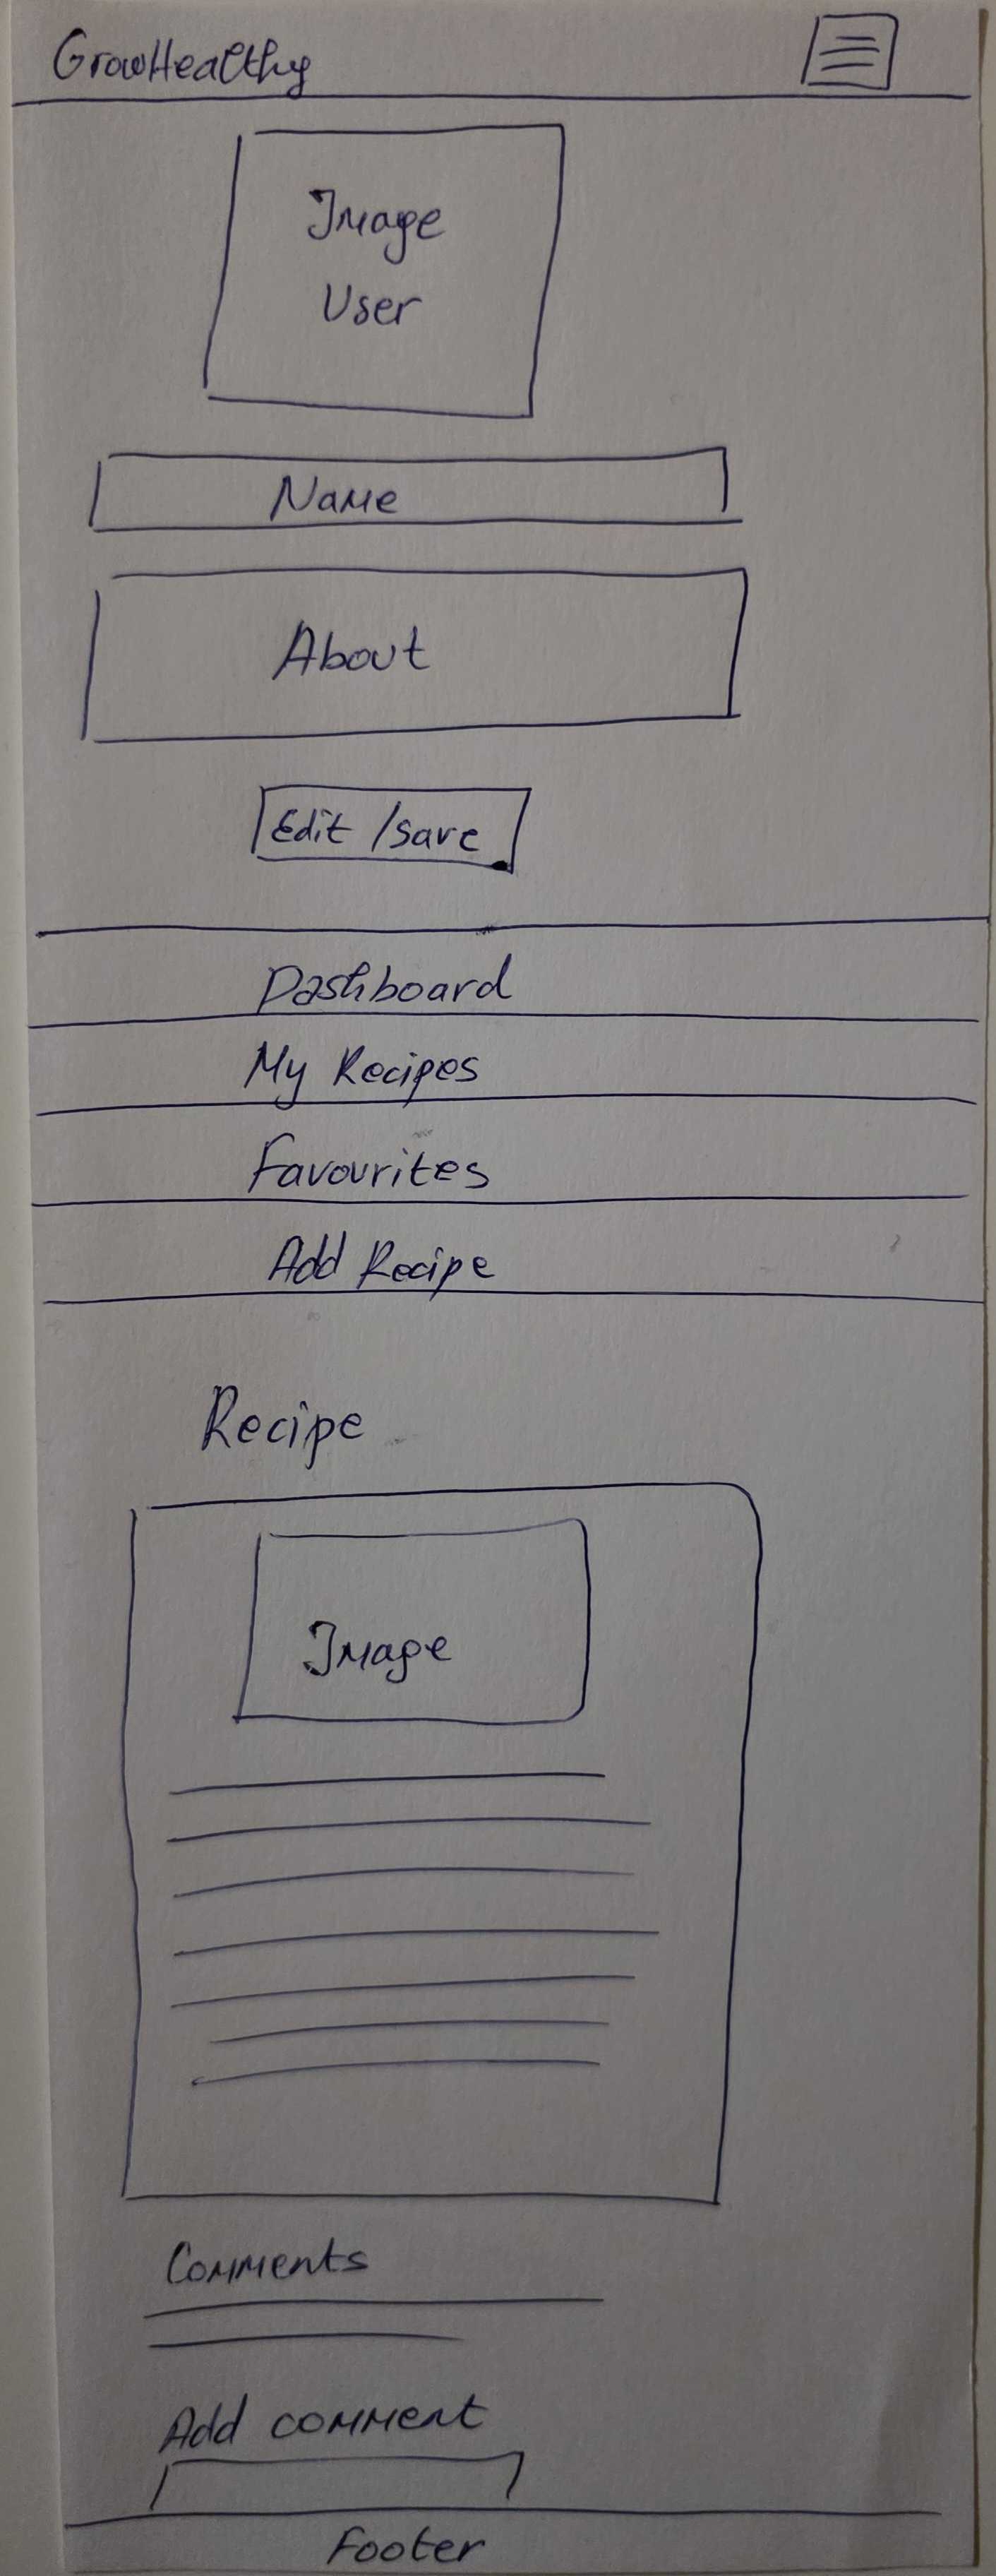 GrowHealthy
Image
User
Name
About
Edit /save
Dashboard
My Recipes
Favourites
Add Recipe
Recipe
Image
Comments
Add comment
Footer